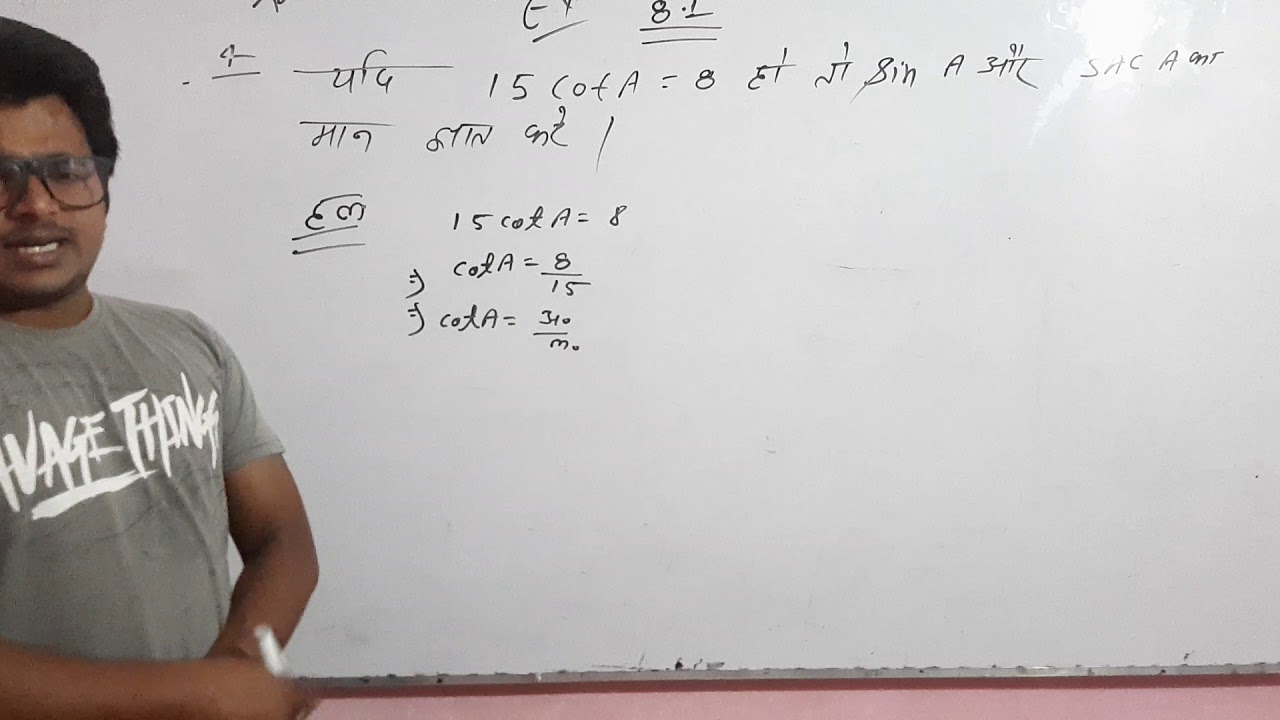 Ex 8.1
4 यदि 15 cot A = 8 हो तो sin A और sec A का
मान ज्ञात करें |
हल 15 cot A = 8
⇒ cot A = 8/15
⇒ cot A = आ०/ल०
AVAGE THINGS